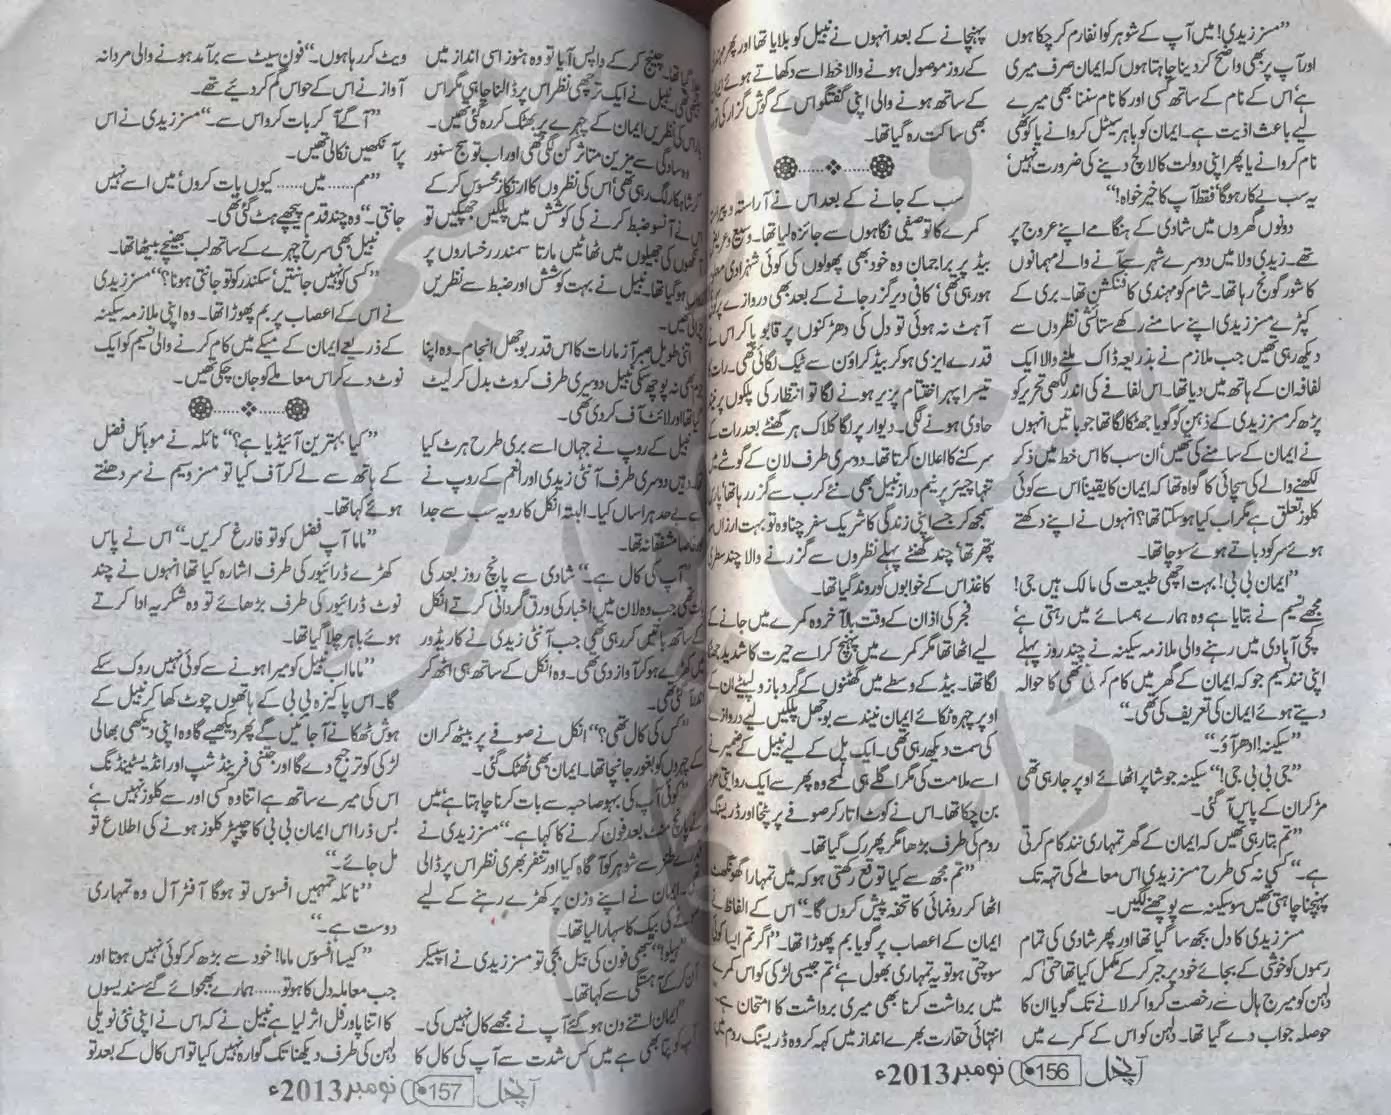 ”مسز زیدی! میں آپ کے شوہر کو انفارم کر چکا ہوں
اور آپ پر بھی واضح کر دینا چاہتا ہوں کہ ایمان صرف میری
ہے‘ اس کے نام کے ساتھ کسی اور کا نام سننا بھی میرے
لیے باعث اذیت ہے۔ ایمان کو باہر سیٹل کروانے یا کوٹھی
نام کروانے یا پھر اپنی دولت کا لالچ دینے کی ضرورت نہیں‘
یہ سب بے کار ہوگا‘ فقط آپ کا خیر خواہ!“
دونوں گھروں میں شادی کے ہنگامے اپنے عروج پر
تھے۔ زیدی ولا میں دوسرے شہر سے آنے والے مہمانوں
کا شور گونج رہا تھا۔ شام کو مہندی کا فنکشن تھا۔ بری کے
کپڑے مسز زیدی اپنے سامنے رکھے ستائشی نظروں سے
دیکھ رہی تھیں جب ملازم نے بذریعہ ڈاک ملنے والا ایک
لفافہ ان کے ہاتھ میں دیا تھا۔ اس لفافے کی اندر لکھی تحریر کو
پڑھ کر مسز زیدی کے ذہن کو گویا جھٹکا لگا تھا جو باتیں انہوں
نے ایمان کے سامنے کی تھیں‘ ان سب کا اس خط میں ذکر
لکھنے والے کی سچائی کا گواہ تھا کہ ایمان کا یقیناً اس سے کوئی
کلوز تعلق ہے مگر اب کیا ہو سکتا تھا؟ انہوں نے اپنے دکھتے
ہوئے سر کو دباتے ہوئے سوچا تھا۔
”ایمان بی بی! بہت اچھی طبیعت کی مالک ہیں جی!
مجھے نسیم نے بتایا ہے وہ ہمارے ہمسائے میں رہتی ہے‘
کچی آبادی میں رہنے والی ملازمہ سکینہ نے چند روز پہلے
اپنی نند نسیم جو کہ ایمان کے گھر میں کام کرتی تھی کا حوالہ
دیتے ہوئے ایمان کی تعریف کی تھی۔“
”سکینہ! ادھر آؤ۔“
”جی بی بی جی!“ سکینہ جو شاپر اٹھائے اوپر جا رہی تھی
مڑ کر ان کے پاس آ گئی۔
”تم بتا رہی تھیں کہ ایمان کے گھر تمہاری نند کام کرتی
ہے۔“ کسی نہ کسی طرح مسز زیدی اس معاملے کی تہہ تک
پہنچنا چاہتی تھیں سو سکینہ سے پوچھنے لگیں۔
مسز زیدی کا دل بجھ سا گیا تھا اور پھر شادی کی تمام
رسموں کو خوشی کے بجائے خود پر جبر کر کے مکمل کیا تھا حتیٰ کہ
دلہن کو میرج ہال سے رخصت کروا کر لانے تک گویا ان کا
حوصلہ جواب دے گیا تھا۔ دلہن کو اس کے کمرے میں
پہنچانے کے بعد انہوں نے نبیل کو بلایا تھا اور پھر
کے روز موصول ہونے والا خط اسے دکھاتے ہوئے ایمان
کے ساتھ ہونے والی اپنی گفتگو اس کے گوش گزار کی تو
بھی ساکت رہ گیا تھا۔
سب کے جانے کے بعد اس نے آراستہ و پیراستہ
کمرے کا توصیفی نگاہوں سے جائزہ لیا تھا۔ وسیع و عریض
بیڈ پر براجمان وہ خود بھی پھولوں کی کوئی شہزادی معلوم
ہو رہی تھی‘ کافی دیر گزر جانے کے بعد بھی دروازے پر کوئی
آہٹ نہ ہوئی تو دل کی دھڑکنوں پر قابو پا کر اس نے
قدرے ایزی ہو کر بیڈ کراؤن سے ٹیک لگائی تھی۔ رات
تیسرا پہر اختتام پزیر ہونے لگا تو انتظار کی پلکوں پر نیند
حاوی ہونے لگی۔ دیوار پر لگا کلاک ہر گھنٹے بعد رات کے
سرکنے کا اعلان کرتا تھا۔ دوسری طرف لان کے گوشے میں
تنہا چیئر پر نیم دراز نبیل بھی نئے کرب سے گزر رہا تھا‘ پارس
سمجھ کر جسے اپنی زندگی کا شریک سفر چنا وہ تو بہت ارزاں
پتھر تھا‘ چند گھنٹے پہلے نظروں سے گزرنے والا چند سطری
کاغذ اس کے خوابوں کو روند گیا تھا۔
فجر کی اذان کے وقت بالآخر وہ کمرے میں جانے کے
لیے اٹھا تھا مگر کمرے میں پہنچ کر اسے حیرت کا شدید جھٹکا
لگا تھا۔ بیڈ کے وسط میں گھٹنوں کے گرد بازو لپیٹے ان کے
اوپر چہرہ ٹکائے ایمان نیند سے بوجھل پلکیں لیے دروازے
کی سمت دیکھ رہی تھی۔ ایک پل کے لیے نبیل کے ضمیر نے
اسے ملامت کی مگر اگلے ہی لمحے وہ پھر سے ایک روایتی مرد
بن چکا تھا۔ اس نے کوٹ اتار کر صوفے پر پٹخا اور ڈریسنگ
روم کی طرف بڑھا مگر پھر رک گیا تھا۔
”تم مجھ سے کیا توقع رکھتی ہو کہ میں تمہارا گھونگھٹ
اٹھا کر رونمائی کا تحفہ پیش کروں گا۔“ اس کے الفاظ نے
ایمان کے اعصاب پر گویا بم پھوڑا تھا۔ ”اگر تم ایسا کوئی
سوچتی ہو تو یہ تمہاری بھول ہے‘ تم جیسی لڑکی کو اس کمرے
میں برداشت کرنا بھی میری برداشت کا امتحان ہے۔
انتہائی حقارت بھرے انداز میں کہہ کر وہ ڈریسنگ روم میں
آنچل 156 نومبر 2013ء
گیا تھا۔ چینج کر کے واپس آیا تو وہ ہنوز اسی انداز میں
تھی۔ نبیل نے ایک ترچھی نظر اس پر ڈالنا چاہی مگر اس
بار اس کی نظریں ایمان کے چہرے پر بھٹک کر رہ گئی تھیں۔
سادگی سے مزین متاثر کن لگتی تھی اور اب تو سج سنور
کر شاہکار لگ رہی تھی‘ اس کی نظروں کا ارتکاز محسوس کر کے
اس نے آنسو ضبط کرنے کی کوشش میں پلکیں جھپکیں تو
آنکھوں کی جھیلوں میں ٹھاٹیں مارتا سمندر رخساروں پر
ہو گیا تھا۔ نبیل نے بہت کوشش اور ضبط سے نظریں
چرالی تھیں۔
اتنی طویل صبر آزما رات کا اس قدر بوجھل انجام۔ وہ اپنا
بھی نہ پوچھ سکی‘ نبیل دوسری طرف کروٹ بدل کر لیٹ
گیا تھا اور لائٹ آف کر دی تھی۔
نبیل کے روپ نے جہاں اسے بری طرح ہرٹ کیا
وہیں دوسری طرف آنٹی زیدی اور انعم کے روپ نے
اسے بے حد ہراساں کیا۔ البتہ انکل کا رویہ سب سے جدا
خاصا مشفقانہ تھا۔
”آپ کی کال ہے۔“ شادی سے پانچ روز بعد کی
تھی جب وہ لان میں اخبار کی ورق گردانی کرتے انکل
کے ساتھ باتیں کر رہی تھی جب آنٹی زیدی نے کاریڈور
میں کھڑے ہو کر آواز دی تھی۔ وہ انکل کے ساتھ ہی اٹھ کر
اندر آ گئی تھی۔
”کس کی کال تھی؟“ انکل نے صوفے پر بیٹھ کر ان
کے چہروں کو بغور جانچا تھا۔ ایمان بھی ٹھٹک گئی۔
”کوئی آپ کی بہو صاحبہ سے بات کرنا چاہتا ہے‘ میں
نے پانچ منٹ بعد فون کرنے کا کہا ہے۔“ مسز زیدی نے
طنز سے شوہر کو آگاہ کیا اور تنفر بھری نظر اس پر ڈالی
تھی۔ ایمان نے اپنے وزن پر کھڑے رہنے کے لیے
صوفے کی بیک کا سہارا لیا تھا۔
”ہیلو!“ تبھی فون کی بیل بجی تو مسز زیدی نے اسپیکر
آن کر کے آہستگی سے کہا تھا۔
”ایمان اتنے دن ہو گئے آپ نے مجھے کال نہیں کی۔
آپ کو پتا بھی ہے میں کس شدت سے آپ کی کال کا
ویٹ کر رہا ہوں۔“ فون سیٹ سے برآمد ہونے والی مردانہ
آواز نے اس کے حواس گم کر دئیے تھے۔
”آگے آ کر بات کرو اس سے۔“ مسز زیدی نے اس
پر آنکھیں نکالی تھیں۔
”مم...... میں...... کیوں بات کروں‘ میں اسے نہیں
جانتی۔“ وہ چند قدم پیچھے ہٹ گئی تھی۔
نبیل بھی سرخ چہرے کے ساتھ لب بھینچے بیٹھا تھا۔
”کسی کو نہیں جانتیں‘ سکندر کو تو جانتی ہونا؟“ مسز زیدی
نے اس کے اعصاب پر بم پھوڑا تھا۔ وہ اپنی ملازمہ سکینہ
کے ذریعے ایمان کے میکے میں کام کرنے والی نسیم کو ایک
نوٹ دے کر اس معاملے کو جان چکی تھیں۔
”کیا بہترین آئیڈیا ہے؟“ نائلہ نے موبائل فضل
کے ہاتھ سے لے کر آف کیا تو مسز وسیم نے سر دھنتے
ہوئے کہا تھا۔
”ماما آپ فضل کو تو فارغ کریں۔“ اس نے پاس
کھڑے ڈرائیور کی طرف اشارہ کیا تھا انہوں نے چند
نوٹ ڈرائیور کی طرف بڑھائے تو وہ شکریہ ادا کرتے
ہوئے باہر چلا گیا تھا۔
”ماما اب نبیل کو میرا ہونے سے کوئی نہیں روک سکے
گا۔ اس پاکیزہ بی بی کے ہاتھوں چوٹ کھا کر نبیل کے
ہوش ٹھکانے آ جائیں گے پھر دیکھیے گا وہ اپنی دیکھی بھالی
لڑکی کو ترجیح دے گا اور جتنی فرینڈ شپ اور انڈیسٹینڈنگ
اس کی میرے ساتھ ہے اتنا وہ کسی اور سے کلوز نہیں ہے‘
بس ذرا اس ایمان بی بی کا چیپٹر کلوز ہونے کی اطلاع تو
مل جائے۔“
”نائلہ تمہیں افسوس تو ہوگا آفٹر آل وہ تمہاری
دوست ہے۔“
”کیسا افسوس ماما! خود سے بڑھ کر کوئی نہیں ہوتا اور
جب معاملہ دل کا ہو تو...... ہمارے بھجوائے گئے سندیسوں
کا اتنا پاورفل اثر لیا ہے نبیل نے کہ اس نے اپنی نئی نویلی
دلہن کی طرف دیکھنا تک گوارہ نہیں کیا تو اس کال کے بعد تو
آنچل 157 نومبر 2013ء